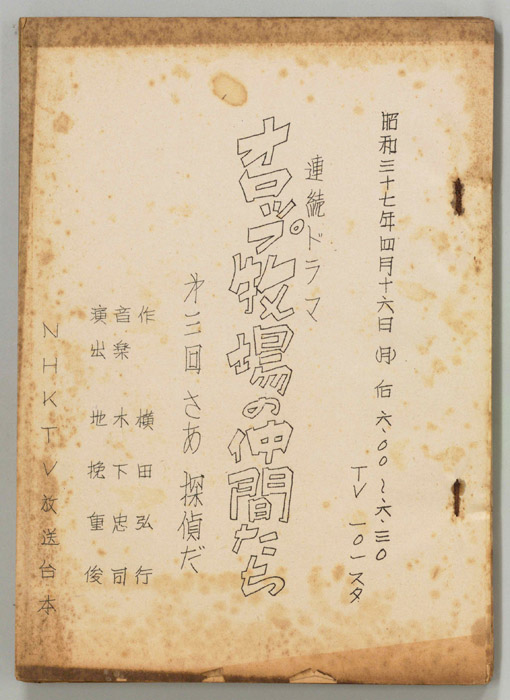 昭和三十七年四月十六日(月)后六.〇〇〜六.三〇
TV一〇一スタ
連続ドラマ
オロップ牧場の仲間たち
第三回 さあ探偵だ
作 横田弘行
音楽 木下忠司
演出 地挽重俊
NHKTV放送台本